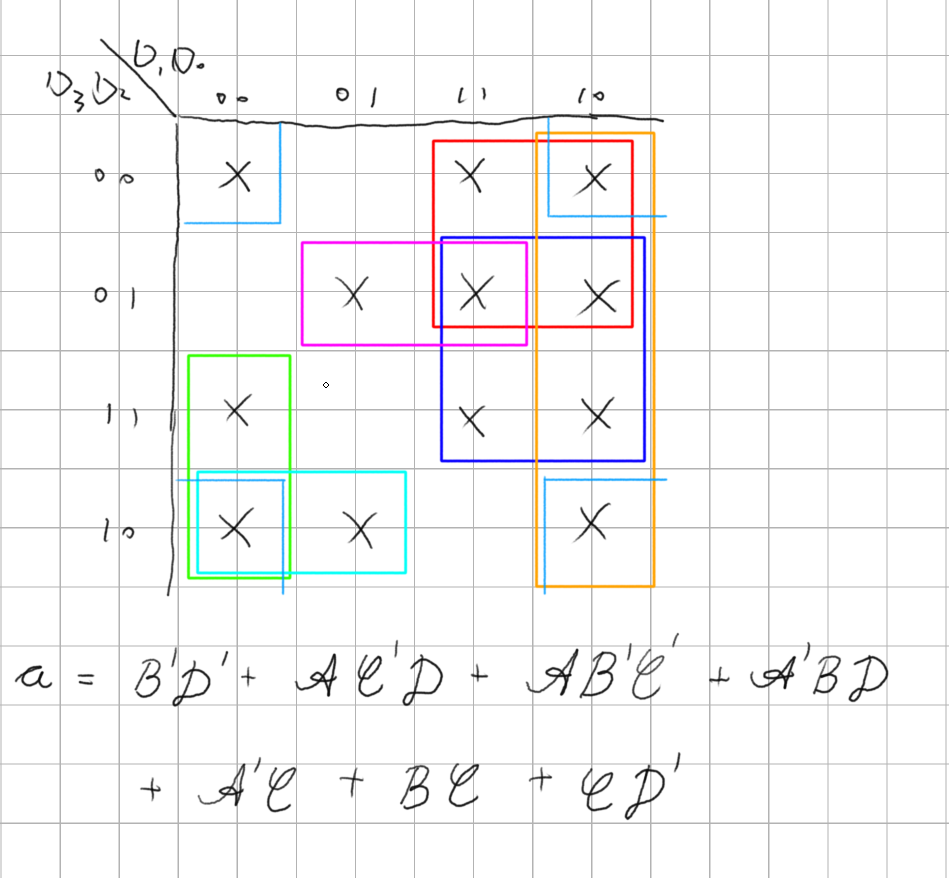 D₁D₀
D₃D₂ 00 01 11 10
00 X X X
01 X X X
11 X X X
10 X X X
a = B'D' + AC'D + AB'C' + A'BD
+ A'C + BC + CD'